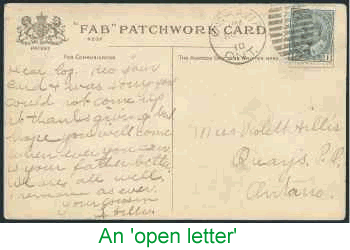 "FAB" PATCHWORK CARD
PATENT
FOR COMMUNICATION
THE ADDRESS ONLY TO BE WRITTEN HERE
10
ONT.
1
your
card & was sorry you
could not come up
at thanksgiving but
hope you will come
when ever you can
is your father better
we are all well.
remain as ever
your cousin
Miss Violet Hillis
Quays. P.O.
Ontario.
An 'open letter'